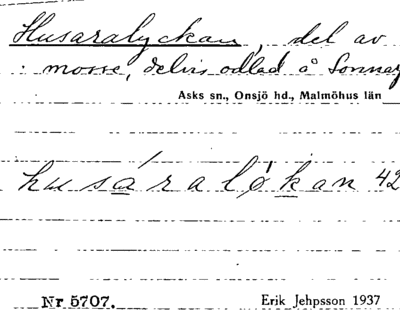 Husaralyckan, del av
mosse, delvis odlad å Sonnar
Asks sn., Onsjö hd., Malmöhus län
husáraløkan 42
Nr 5707. Erik Jehpsson 1937